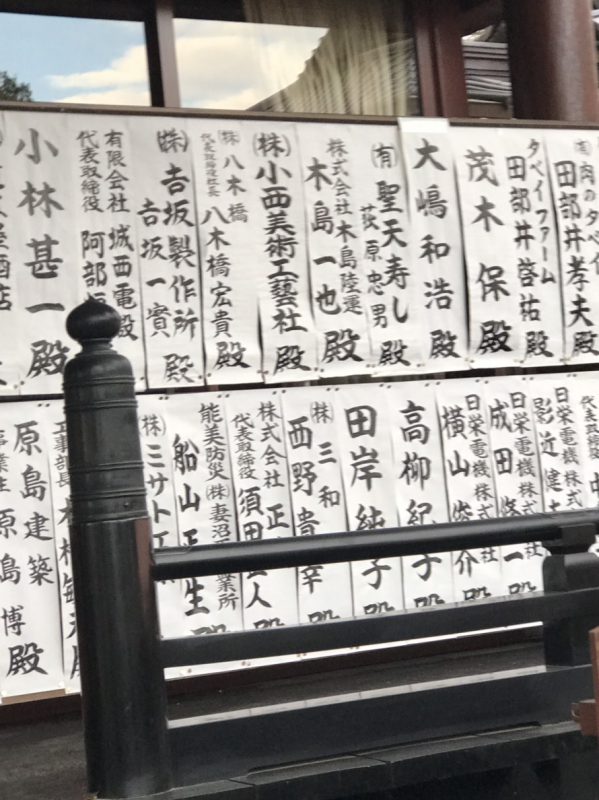 (有)肉のタベイ
田部井孝夫殿
タベイファーム
田部井啓祐殿
茂木保殿
大嶋和浩殿
(有)聖天寿し
荻原忠男殿
株式会社木島陸運
木島一也殿
(株)小西美術工藝社殿
(株)八木橋
代表取締役社長 八木橋宏貴殿
(株)吉坂製作所
吉坂一實殿
有限会社 城西電設
代表取締役 阿部
小林甚一殿
酒店
代表取締役
日栄電機株式
影近
日栄電機株式会社
成田 一
日栄電機株式会社
横山 介
高柳紀子殿
田岸純子殿
(株)三和
西野貴幸殿
株式会社 正
代表取締役 須田 人殿
能美防災(株)妻沼 業所
船山正生殿
(株)ミサト工
工事部長
原島建築
原島博殿